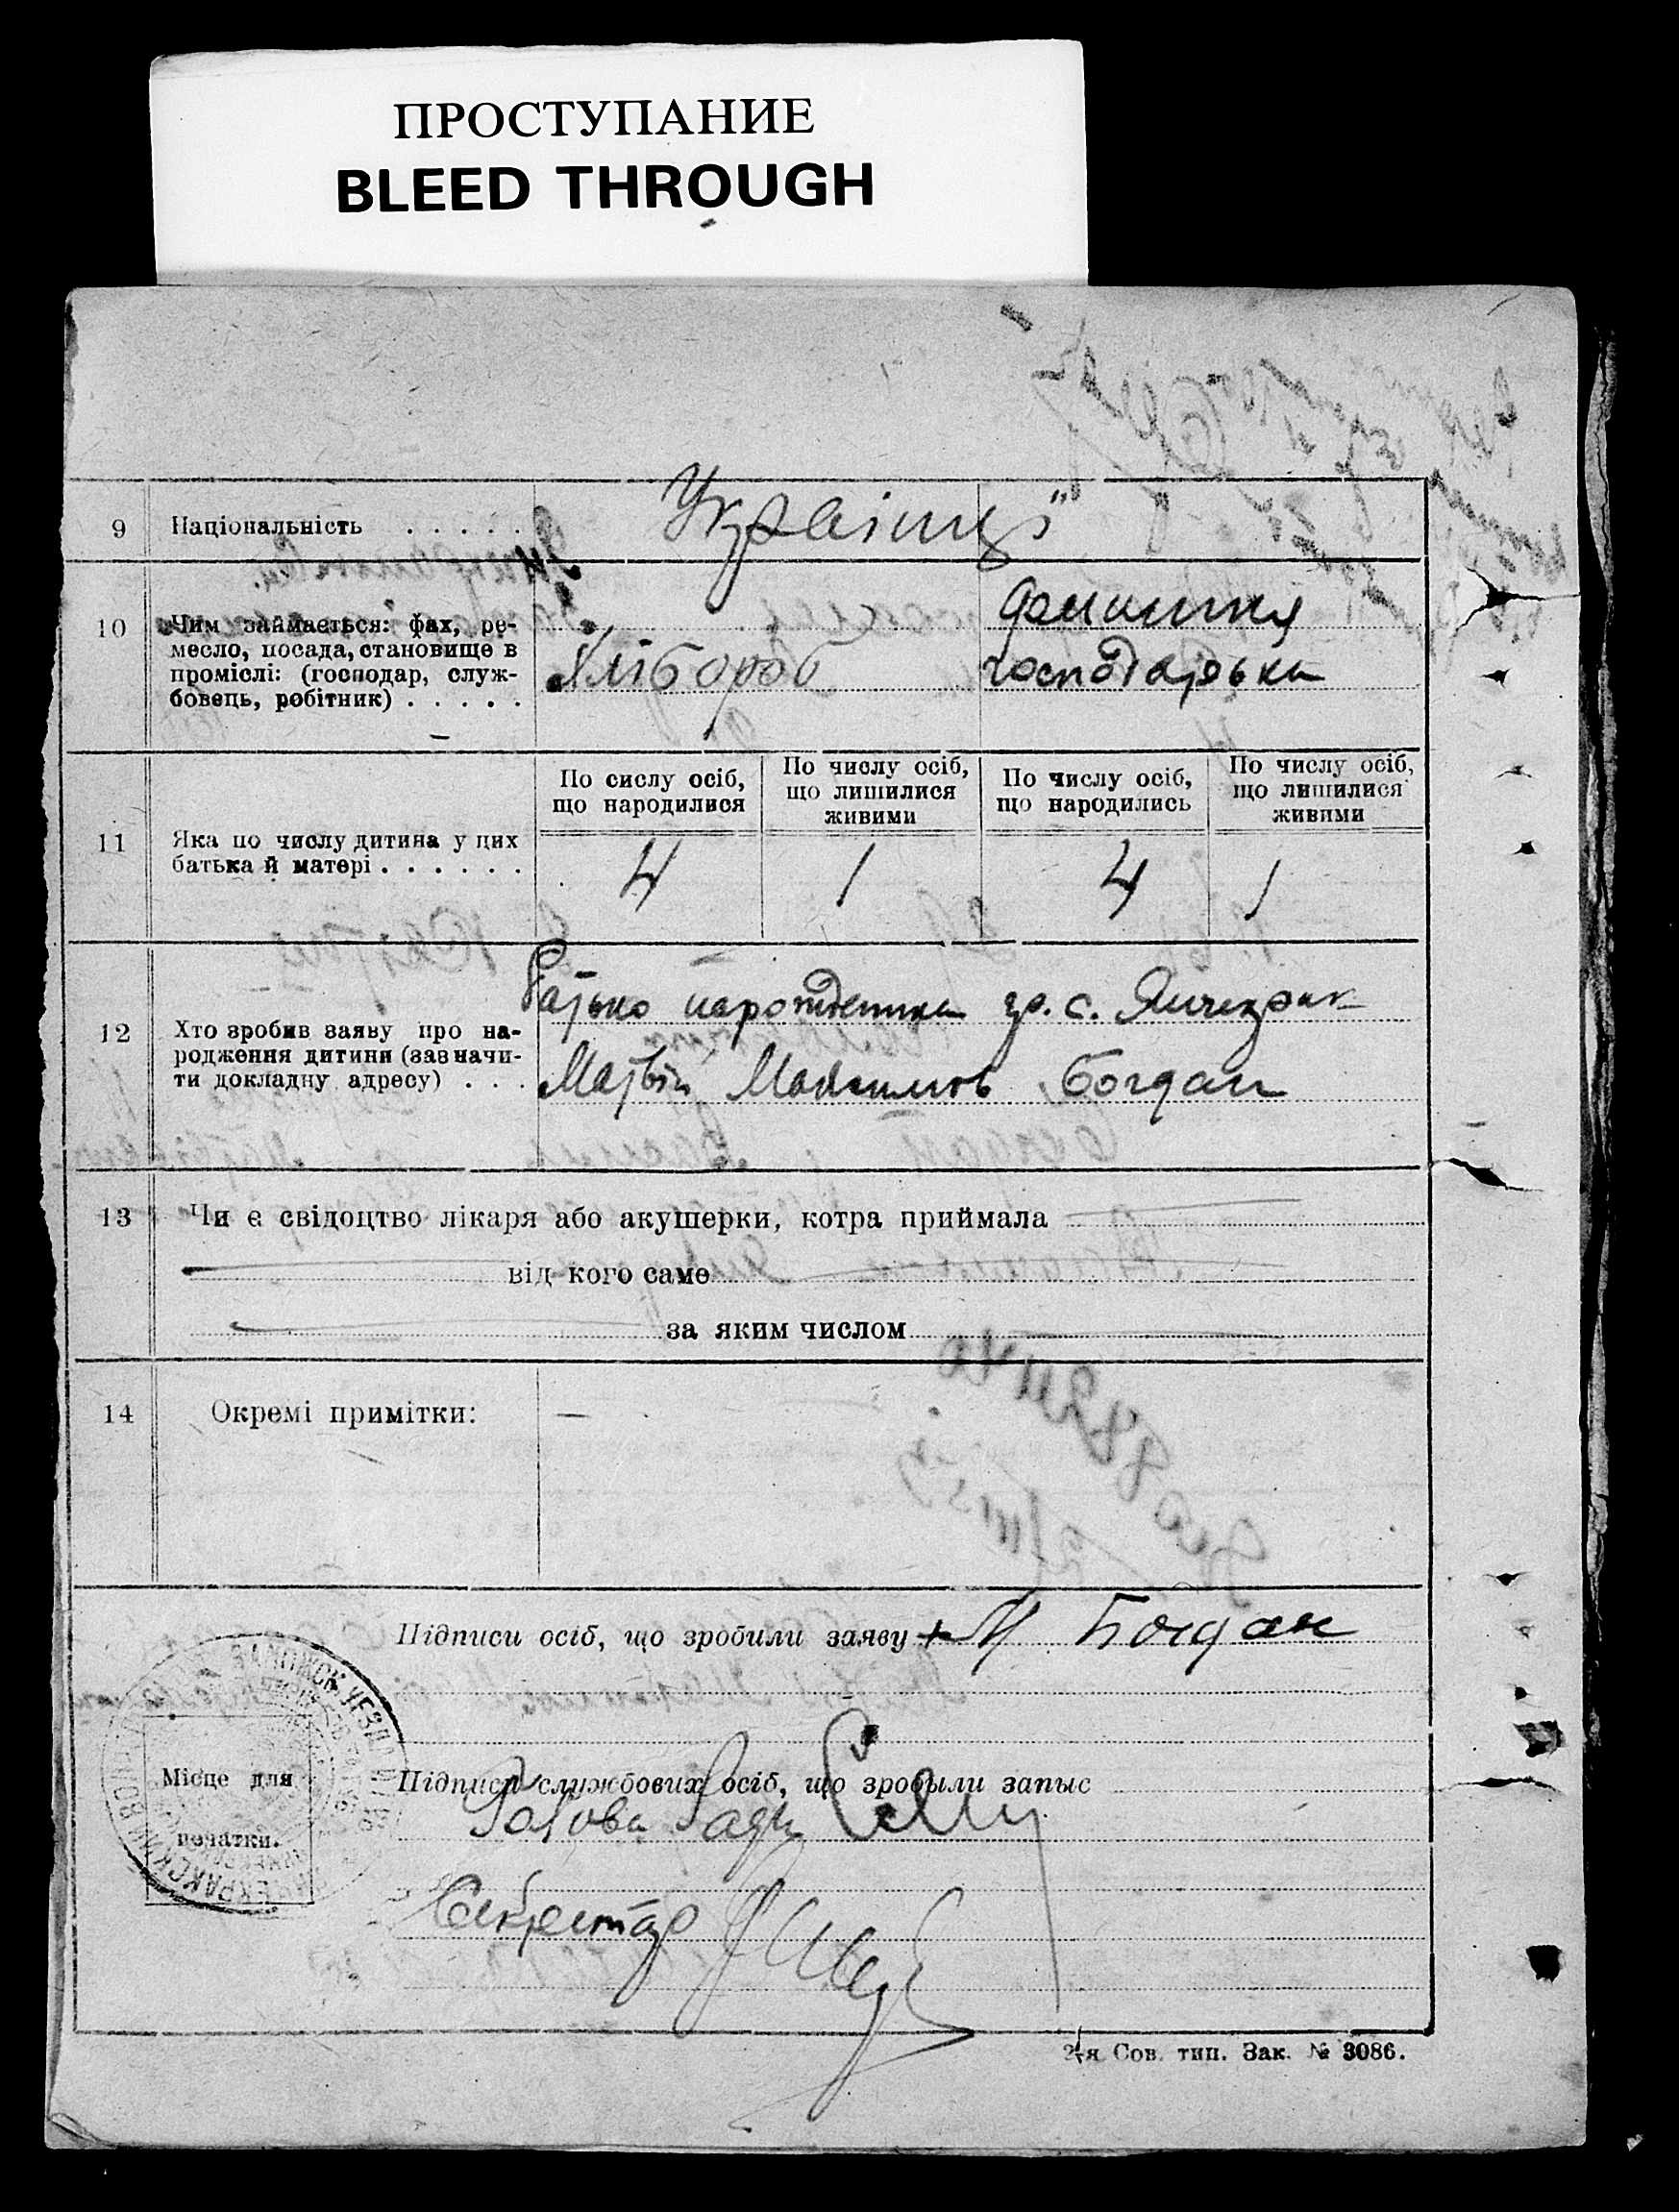 ПРОСТУПАНИЕ
BLEED THROUGH
9 Національність . . . . . Українці
10 Чим займається: фах, ре-
месло, посада, становище в
проміслі: (господар, служ-
бовець, робітник) . . . . .
Хлібороб
домашня
господарька
11 Яка по числу дитина у цих
батька й матері . . . . . .
По сислу осіб,
що народилися
По числу осіб,
що лишилися
живими
По числу осіб,
що народились
По числу осіб,
що лишилися
живими
4 1 4 1
12 Хто зробив заяву про на-
родження дитини (зазначи-
ти докладну адресу) . . .
Батько народженика гр. с. Янчекрак
Матвій Максимов Богдан
13 Чи є свідоцтво лікаря або акушерки, котра приймала
від кого саме
за яким числом
14 Окремі примітки: —
Підписи осіб, що зробили заяву + М Богдан
Місце для
печатки.
Підписи службових осіб, що зробыли запыс
Голова Ради
Секретар
2-я Сов. тип. Зак. № 3086.